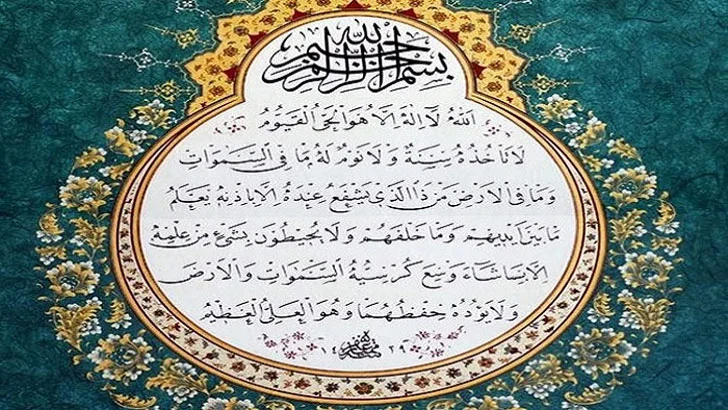 بسم الله الرحمن الرحيم
الله لا اله الا هو الحي القيوم
لا تاخذه سنة ولا نوم له ما في السموات
وما في الارض من ذا الذي يشفع عنده الا باذنه يعلم
ما بين ايديهم وما خلفهم ولا يحيطون بشيء من علمه
الا بما شاء وسع كرسيه السموات والارض
ولا يؤده حفظهما وهو العلي العظيم